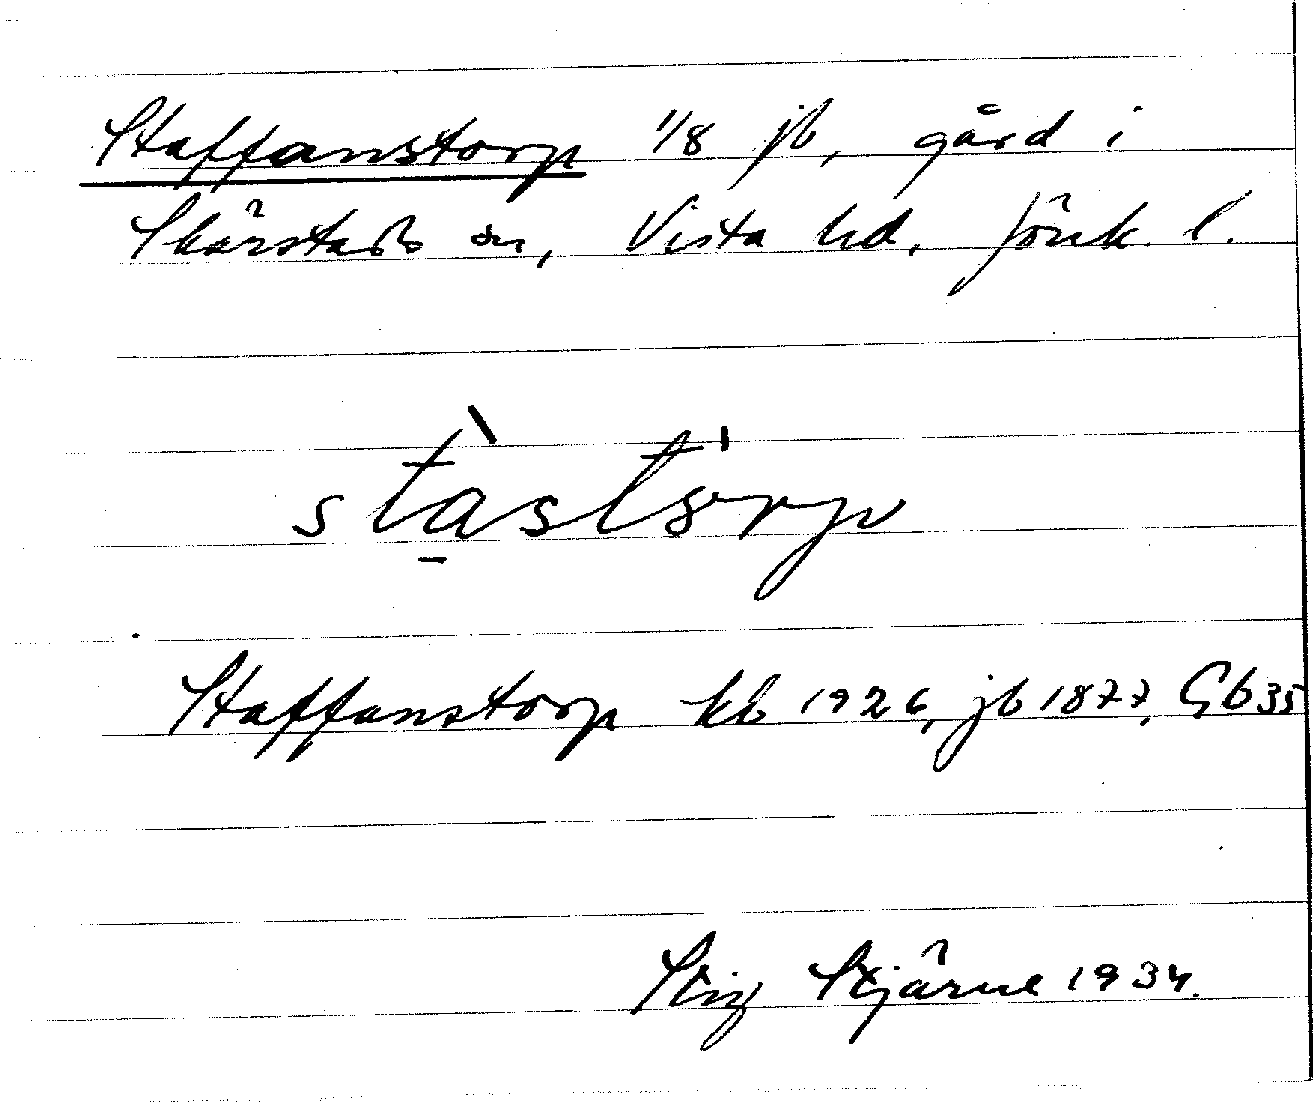 Staffanstorp 1/8 jb, gård i
Skärstads sn, Vista hd, Jönk. l.
stàstörp
Staffanstorp kb 1926, jb 1877, Gb 35
Stig Stjärne 1934.